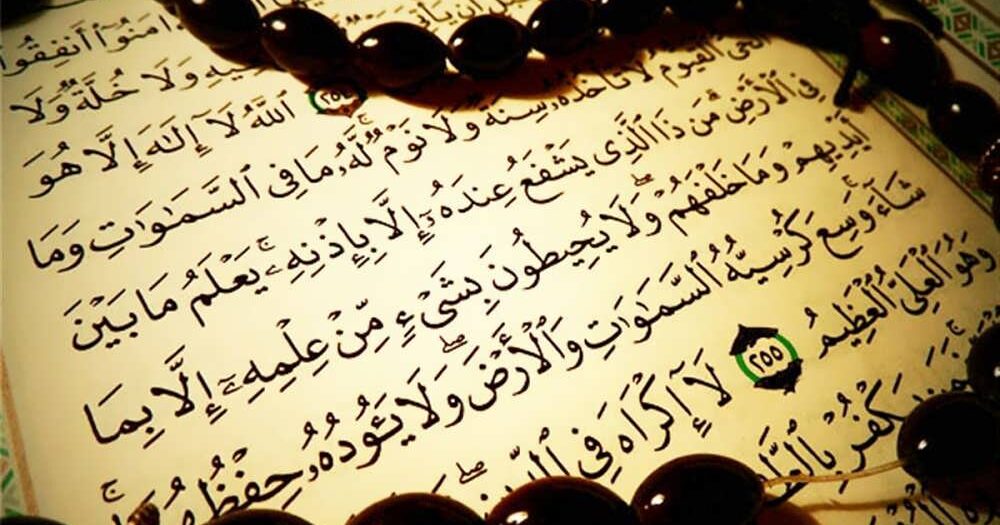 ءَامَنُوٓا۟ أَنفِقُوا۟
أَن يَأْتِىَ
فِيهِ وَلَا خُلَّةٌ وَلَا
٢٥٤ ٱللَّهُ لَآ إِلَٰهَ إِلَّا هُوَ
ٱلْحَىُّ ٱلْقَيُّومُ لَا تَأْخُذُهُۥ سِنَةٌ وَلَا نَوْمٌ ۚ لَّهُۥ مَا فِى ٱلسَّمَٰوَٰتِ وَمَا
فِى ٱلْأَرْضِ ۗ مَن ذَا ٱلَّذِى يَشْفَعُ عِندَهُۥٓ إِلَّا بِإِذْنِهِۦ ۚ يَعْلَمُ مَا بَيْنَ
أَيْدِيهِمْ وَمَا خَلْفَهُمْ ۖ وَلَا يُحِيطُونَ بِشَىْءٍ مِّنْ عِلْمِهِۦٓ إِلَّا بِمَا
شَآءَ ۚ وَسِعَ كُرْسِيُّهُ ٱلسَّمَٰوَٰتِ وَٱلْأَرْضَ ۖ وَلَا يَـُٔودُهُۥ حِفْظُهُمَا ۚ
وَهُوَ ٱلْعَلِىُّ ٱلْعَظِيمُ ٢٥٥ لَآ إِكْرَاهَ فِى ٱلدِّينِ ۖ
يَكْفُرْ